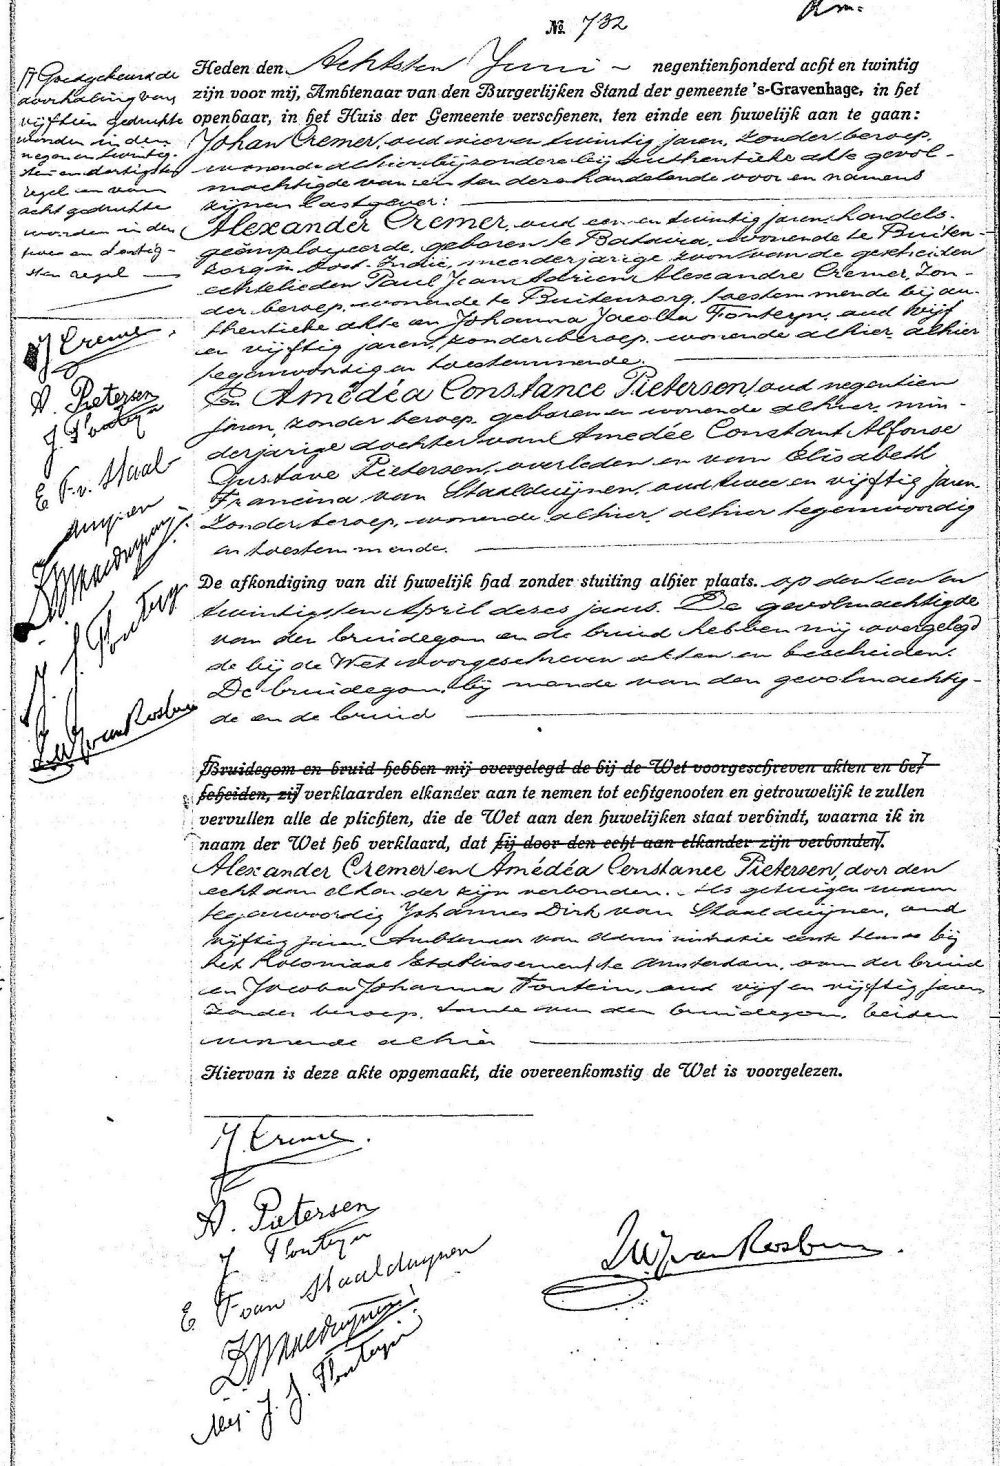 № 732
Heden den Achtsten Juni negentienhonderd acht en twintig
zijn voor mij, Ambtenaar van den Burgerlijken Stand der gemeente 's-Gravenhage, in het
openbaar, in het Huis der Gemeente verschenen, ten einde een huwelijk aan te gaan:
Johan Cremer, oud en twintig jaren, zonder beroep,
wonende alhier, bijzondere bij authentieke akte gevol-
machtigde van en ten deze handelende voor en namens
zijnen lastgever:
Alexander Cremer, oud een en twintig jaren, handels-
geëmployeerde, geboren te Batavia, wonende te Buiten-
zorg in Oost-Indië, meerderjarige zoon van de gescheiden
echtelieden Paul Jean Adrien Alexandre Cremer, zon-
der beroep, wonende te Buitenzorg, toestemmende bij au-
thentieke akte en Johanna Jacoba Fonteyn, oud vijf
en vijftig jaren, zonder beroep, wonende alhier, alhier
tegenwoordig en toestemmende.
En Amédéa Constance Pietersen, oud negentien
jaren, zonder beroep, geboren en wonende alhier, min-
derjarige dochter van Amedée Constant Alfonse
Gustave Pietersen, overleden en van Elisabeth
Francina van Staalduijnen, oud twee en vijftig jaren,
zonder beroep, wonende alhier, alhier tegenwoordig
en toestemmende.
De afkondiging van dit huwelijk had zonder stuiting alhier plaats. op den een en
twintigsten April dezes jaars. De gevolmachtigde
van den bruidegom en de bruid hebben mij overgelegd
de bij de Wet voorgeschreven akten en bescheiden.
De bruidegom, bij monde van den gevolmachtig-
de en de bruid
Bruidegom en bruid hebben mij overgelegd de bij de Wet voorgeschreven akten en be-
scheiden, zij verklaarden elkander aan te nemen tot echtgenooten en getrouwelijk te zullen
vervullen alle de plichten, die de Wet aan den huwelijken staat verbindt, waarna ik in
naam der Wet heb verklaard, dat zij door den echt aan elkander zijn verbonden.
Alexander Cremer en Amédéa Constance Pietersen, door den
echt aan elkander zijn verbonden. Als getuigen waren
tegenwoordig Johannes Dirk van Staalduijnen, oud
vijftig jaren, Ambtenaar van administratie eerste klasse bij
het Koloniaal Etablissement te Amsterdam, oom der bruid
en Jacoba Johanna Fontein, oud vijf en vijftig jaren,
zonder beroep, tante van den bruidegom, beiden
wonende alhier
Hiervan is deze akte opgemaakt, die overeenkomstig de Wet is voorgelezen.
Goedgekeurd de
doorhaling van
vijftien gedrukte
woorden in den
negen en twintig-
sten en dertigsten
regel en van
acht gedrukte
woorden in den
twee en dertig-
sten regel
J Cremer.
A. Pietersen
J Fonteyn
E F. v. Staal
duynen
J. J. Fonteyn
J. Cremer.
A. Pietersen
J Fonteyn
E F van Staalduynen
Mej. J. J. Fonteyn